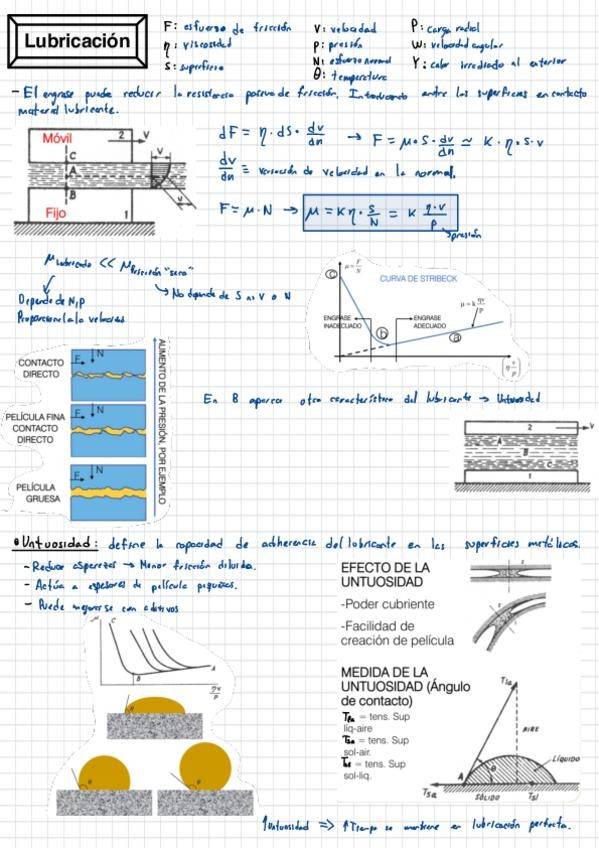 Lubricación
F: esfuerzo de fricción V: velocidad P: carga radial
η: viscosidad p: presión W: velocidad angular
S: superficie N: esfuerzo normal Y: calor irradiado al exterior
θ: temperatura
- El engrase puede reducir la resistencia pasiva de fricción. Introduciendo entre las superficies en contacto
material lubricante.
Móvil 2 V
C
A
B
Fijo 1
V
u
dF = η · dS · dv/dn → F = μ · S · dv/dn ≃ K · η · S · v
dv/dn = variación de velocidad en la normal.
F = μ · N → μ = K η · S/N = K η·v/p
presión
μ lubricado << μ fricción "seca"
Depende de N, P
Proporcional a la velocidad
No depende de S ni V o N
CURVA DE STRIBECK
μ = F/N
c
ENGRASE INADECUADO
b
ENGRASE ADECUADO
a
μ = k ηv/p
(η v/p)
CONTACTO DIRECTO
F N
PELÍCULA FINA CONTACTO DIRECTO
F N
PELÍCULA GRUESA
F N
AUMENTO DE LA PRESIÓN, POR EJEMPLO
En B aparece otra característica del lubricante → Untuosidad
2 V
A
B
C
1
• Untuosidad: define la capacidad de adherencia del lubricante en las superficies metálicas.
- Reduce asperezas → Menor fricción
- Actúa a espesores de película pequeños.
- Puede mejorarse con aditivos
μ C
B
A
ηv/p
θ
θ
θ
EFECTO DE LA
UNTUOSIDAD
-Poder cubriente
-Facilidad de
creación de película
MEDIDA DE LA
UNTUOSIDAD (Ángulo
de contacto)
= tens. Sup
liq-aire
Tsa = tens. Sup
sol-air.
= tens. Sup
sol-liq.
Tla
AIRE
LÍQUIDO
A θ
Tsa SÓLIDO Tsl
↑ Untuosidad => ↑ Tiempo se mantiene en lubricación perfecta.